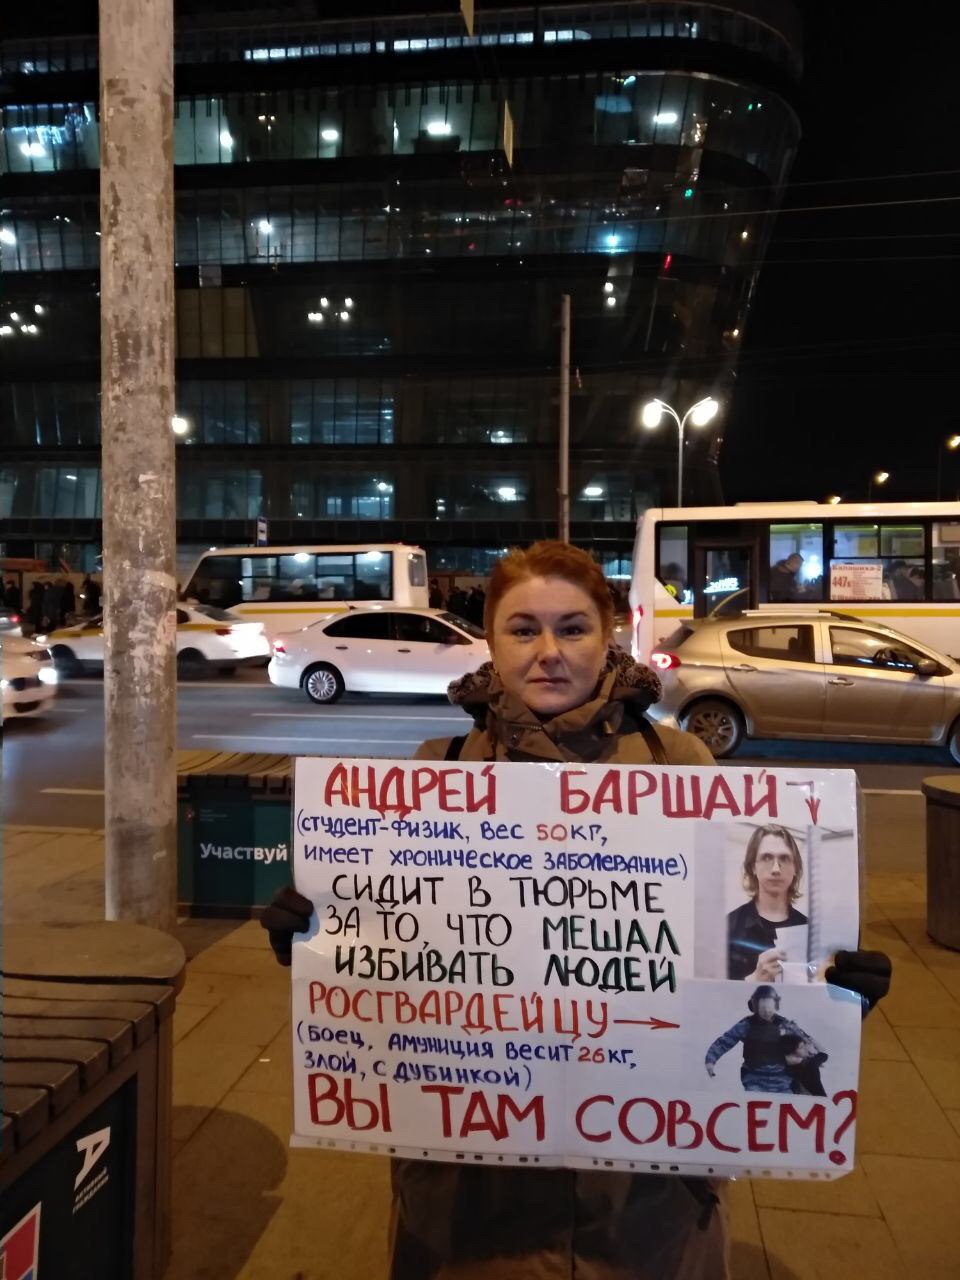 Балашиха-2
447к
Участвуй
АНДРЕЙ БАРШАЙ
(СТУДЕНТ-ФИЗИК, ВЕС 50 КГ,
ИМЕЕТ ХРОНИЧЕСКОЕ ЗАБОЛЕВАНИЕ)
СИДИТ В ТЮРЬМЕ
ЗА ТО, ЧТО МЕШАЛ
ИЗБИВАТЬ ЛЮДЕЙ
РОСГВАРДЕЙЦУ
(БОЕЦ, АМУНИЦИЯ ВЕСИТ 26 КГ,
ЗЛОЙ, С ДУБИНКОЙ)
ВЫ ТАМ СОВСЕМ?